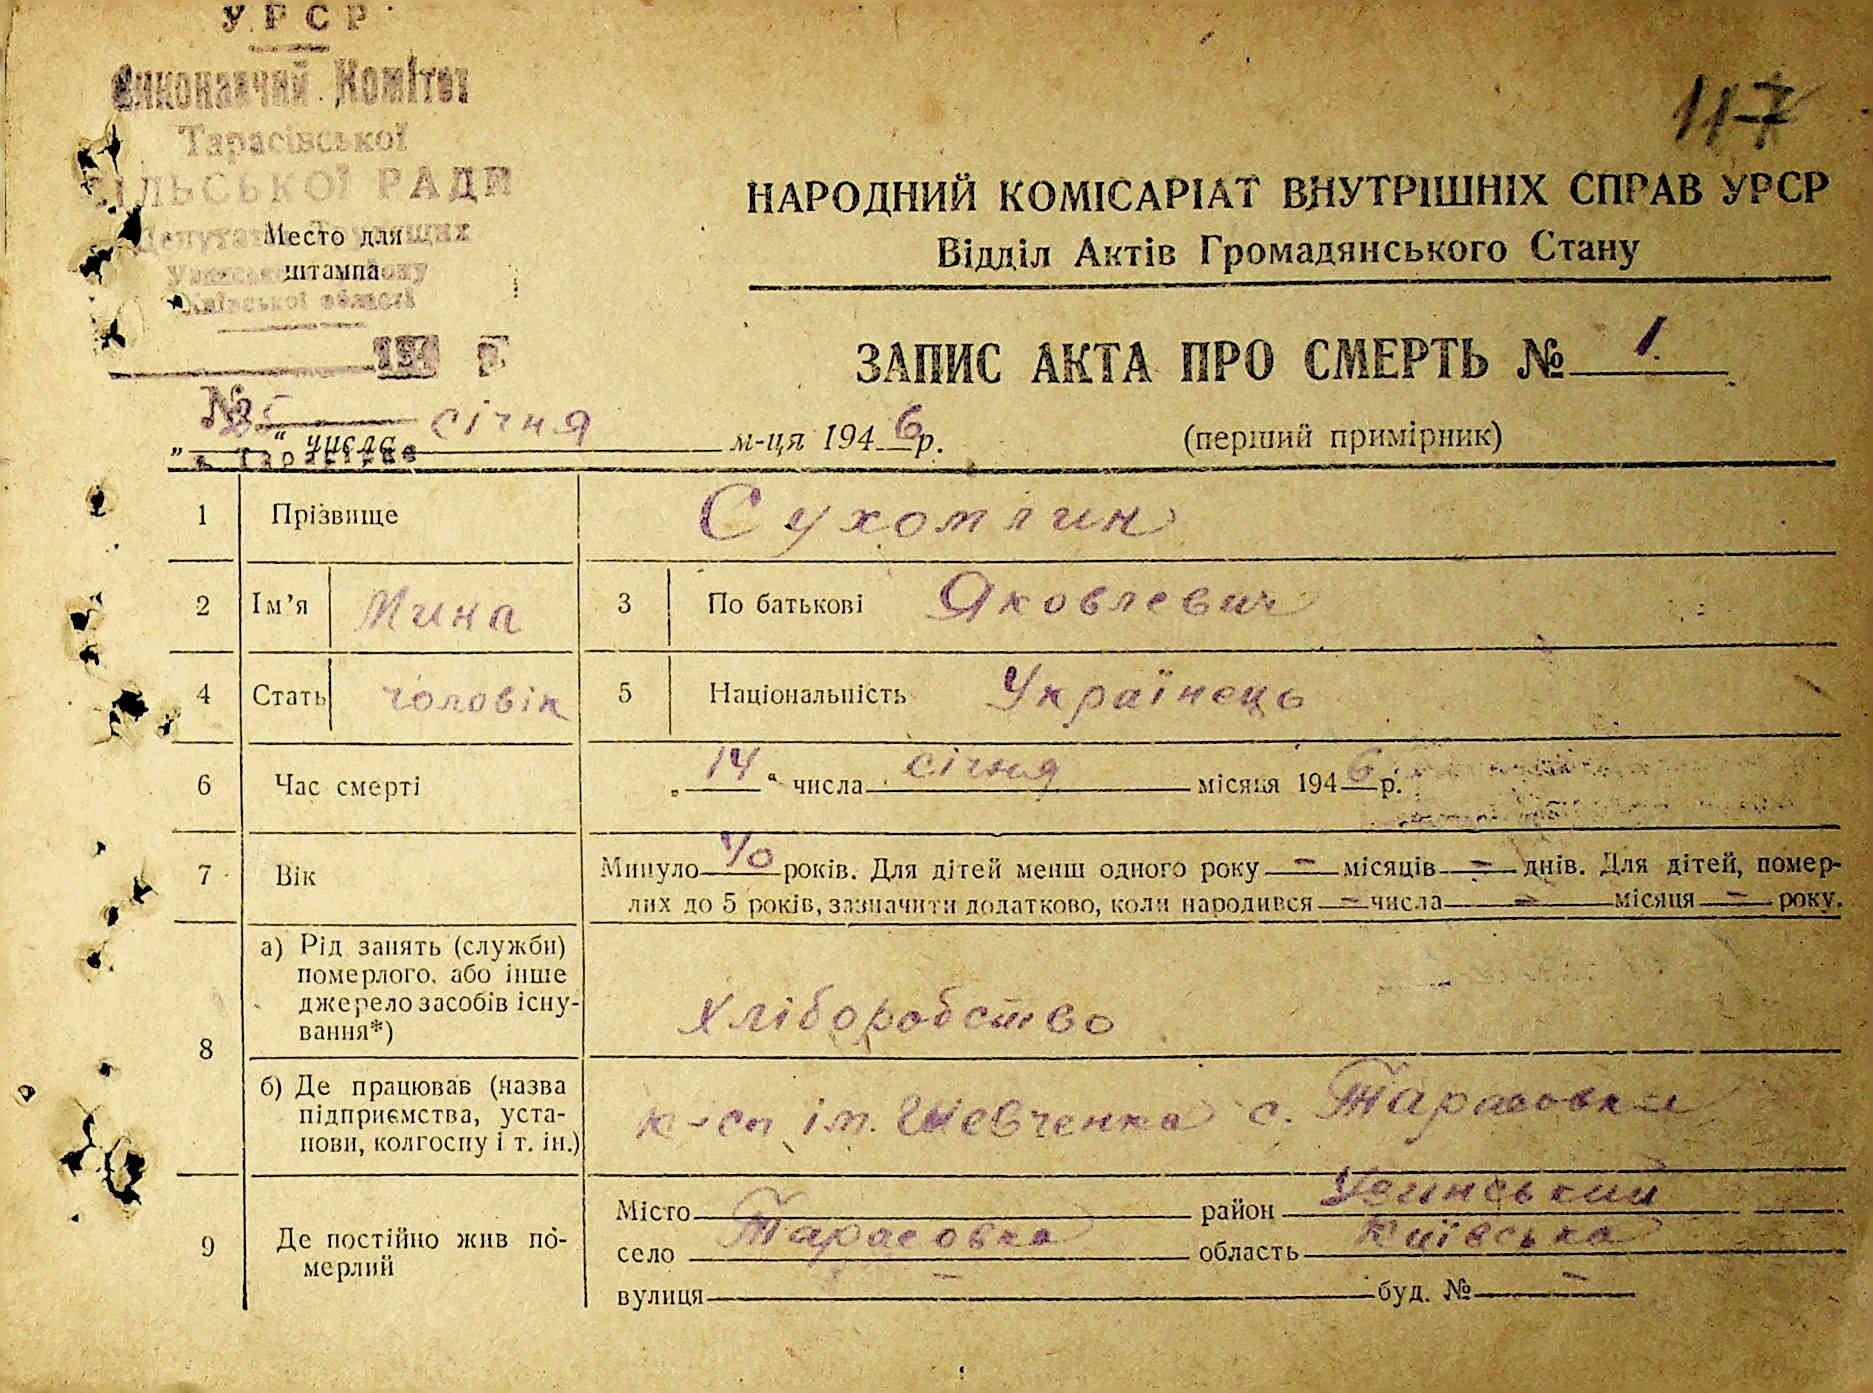 УРСР
Виконавчий Комітет
Тарасівської
СІЛЬСЬКОЇ РАДИ
Депутатів Трудящих
Место для
штампа
Київської області
194 р.
№
117
НАРОДНИЙ КОМІСАРІАТ ВНУТРІШНІХ СПРАВ УРСР
Відділ Актів Громадянського Стану
ЗАПИС АКТА ПРО СМЕРТЬ № 1.
„ 25 “ числа січня м-ця 1946 р. (перший примірник)
1 Прізвище Сухомлин
2 Ім’я Мина 3 По батькові Яковлевич
4 Стать чоловік 5 Національність Українець
6 Час смерті „ 14 “ числа січня місяця 1946 р.
7 Вік Минуло 70 років. Для дітей менш одного року – місяців – днів. Для дітей, помер-
лих до 5 років, зазначити додатково, коли народився – числа – місяця – року.
8 а) Рід занять (служби)
померлого, або інше
джерело засобів існу-
вання*)
Хліборобство
б) Де працював (назва
підприємства, уста-
нови, колгоспу і т. ін.)
к-сп ім. Шевченка с. Тарасовка
9 Де постійно жив по-
мерлий
Місто район Узинський
село Тарасовка область Київська
вулиця – буд. № –